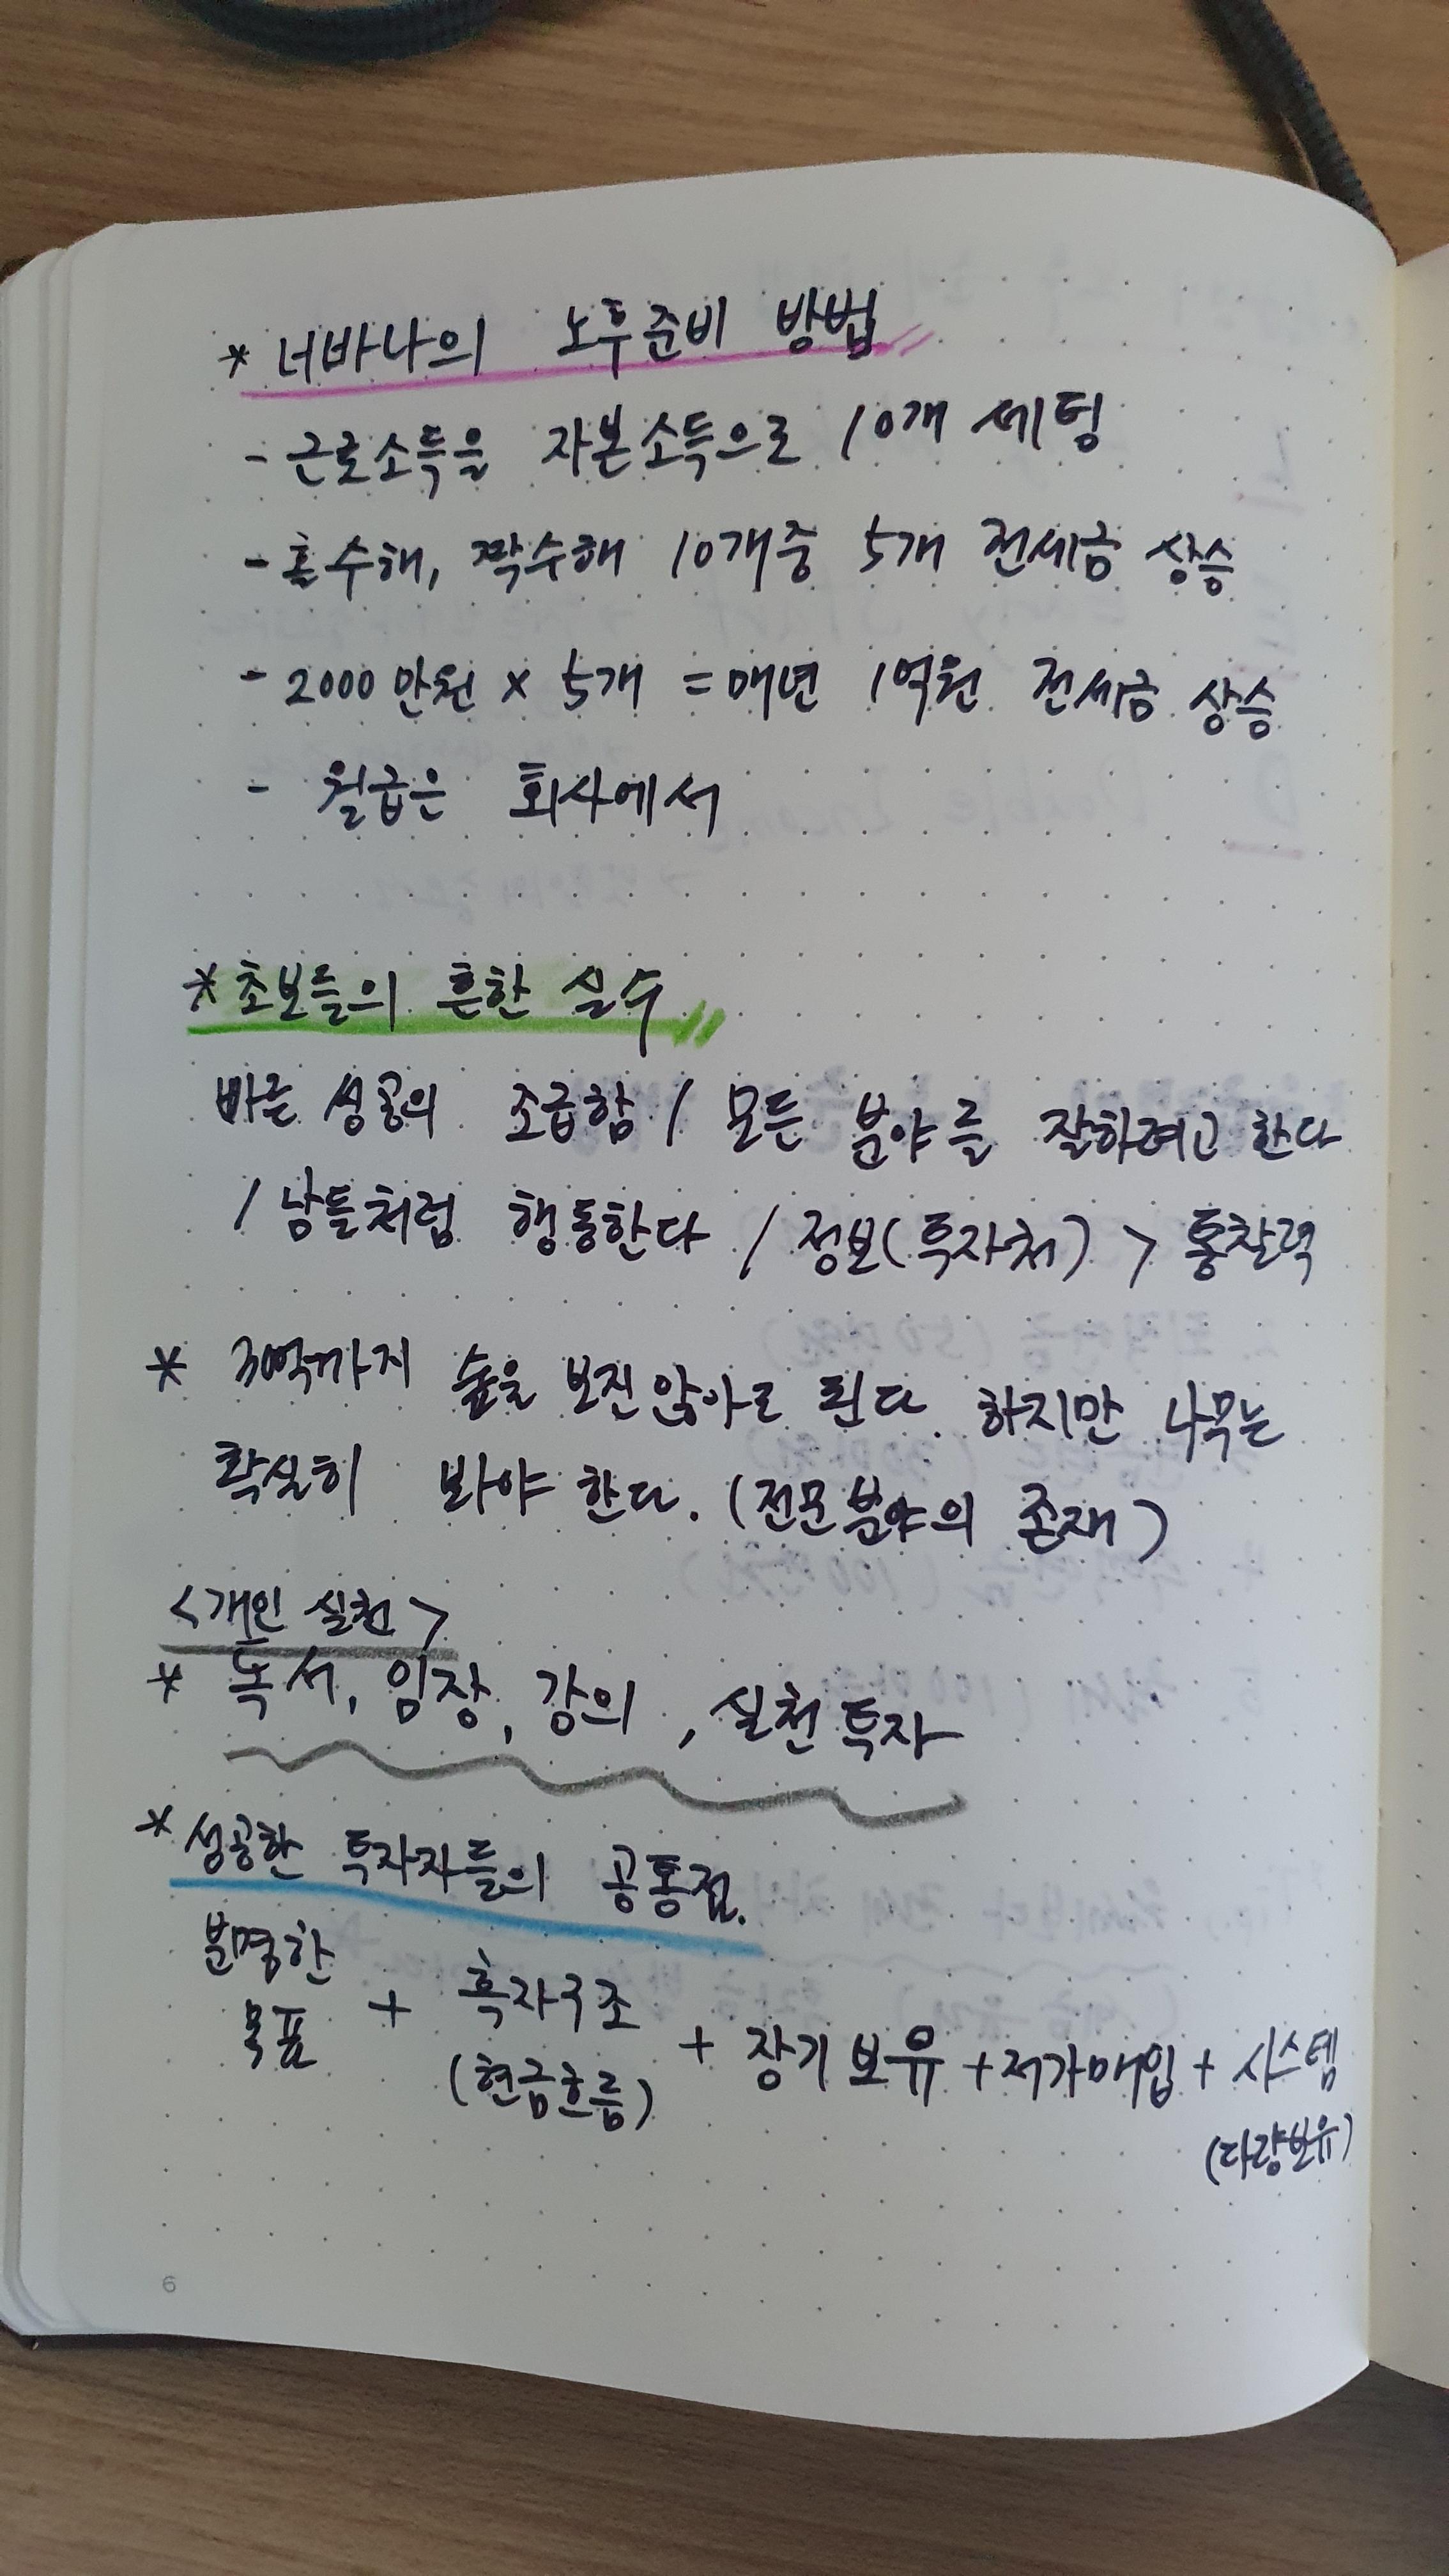 * 너바나의 노후준비 방법
- 근로소득을 자본소득으로 10개 세팅
- 홀수해, 짝수해 10개중 5개 전세금 상승
- 2000만원 × 5개 = 매년 1억원 전세금 상승
- 월급은 회사에서
* 초보들의 흔한 실수
빠른 성공의 조급함 / 모든 분야를 잘하려고 한다
/ 남들처럼 행동한다 / 정보(투자처) > 통찰력
* 30억까지 숲을 보진 않아도 된다. 하지만 나무는
확실히 봐야 한다. (전문분야의 존재)
<개인 실천>
* 독서, 임장, 강의, 실천투자
* 성공한 투자자들의 공통점.
분명한 목표 + 흑자구조 (현금흐름) + 장기보유 + 저가매입 + 시스템 (다량보유)
6